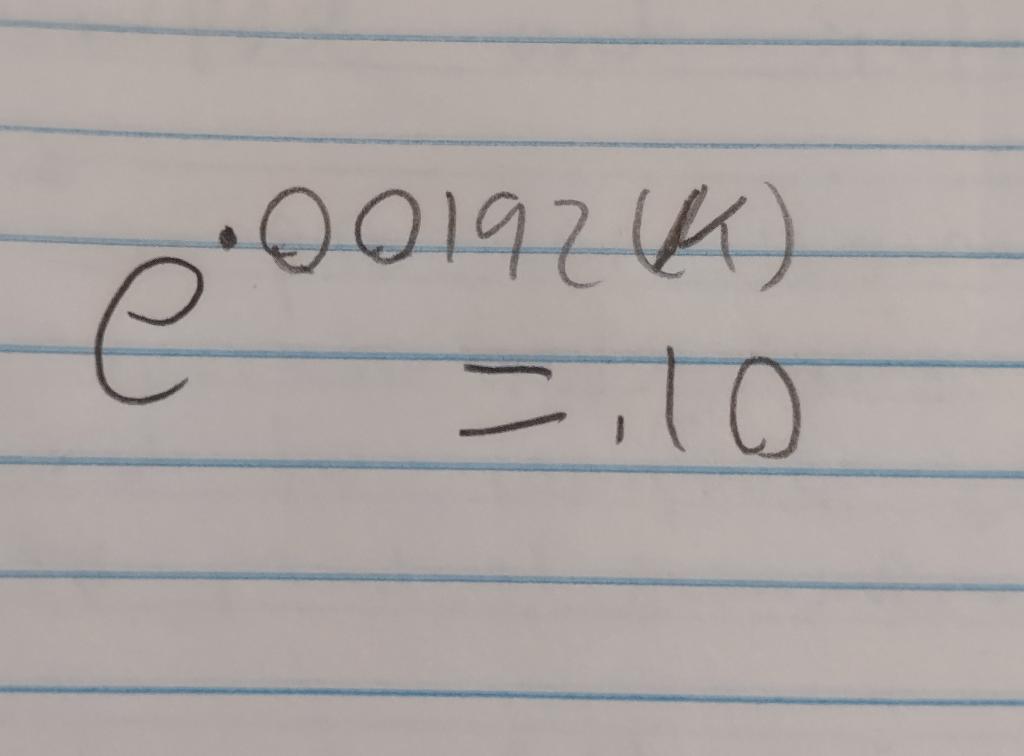 e^.00192(K)
=.10